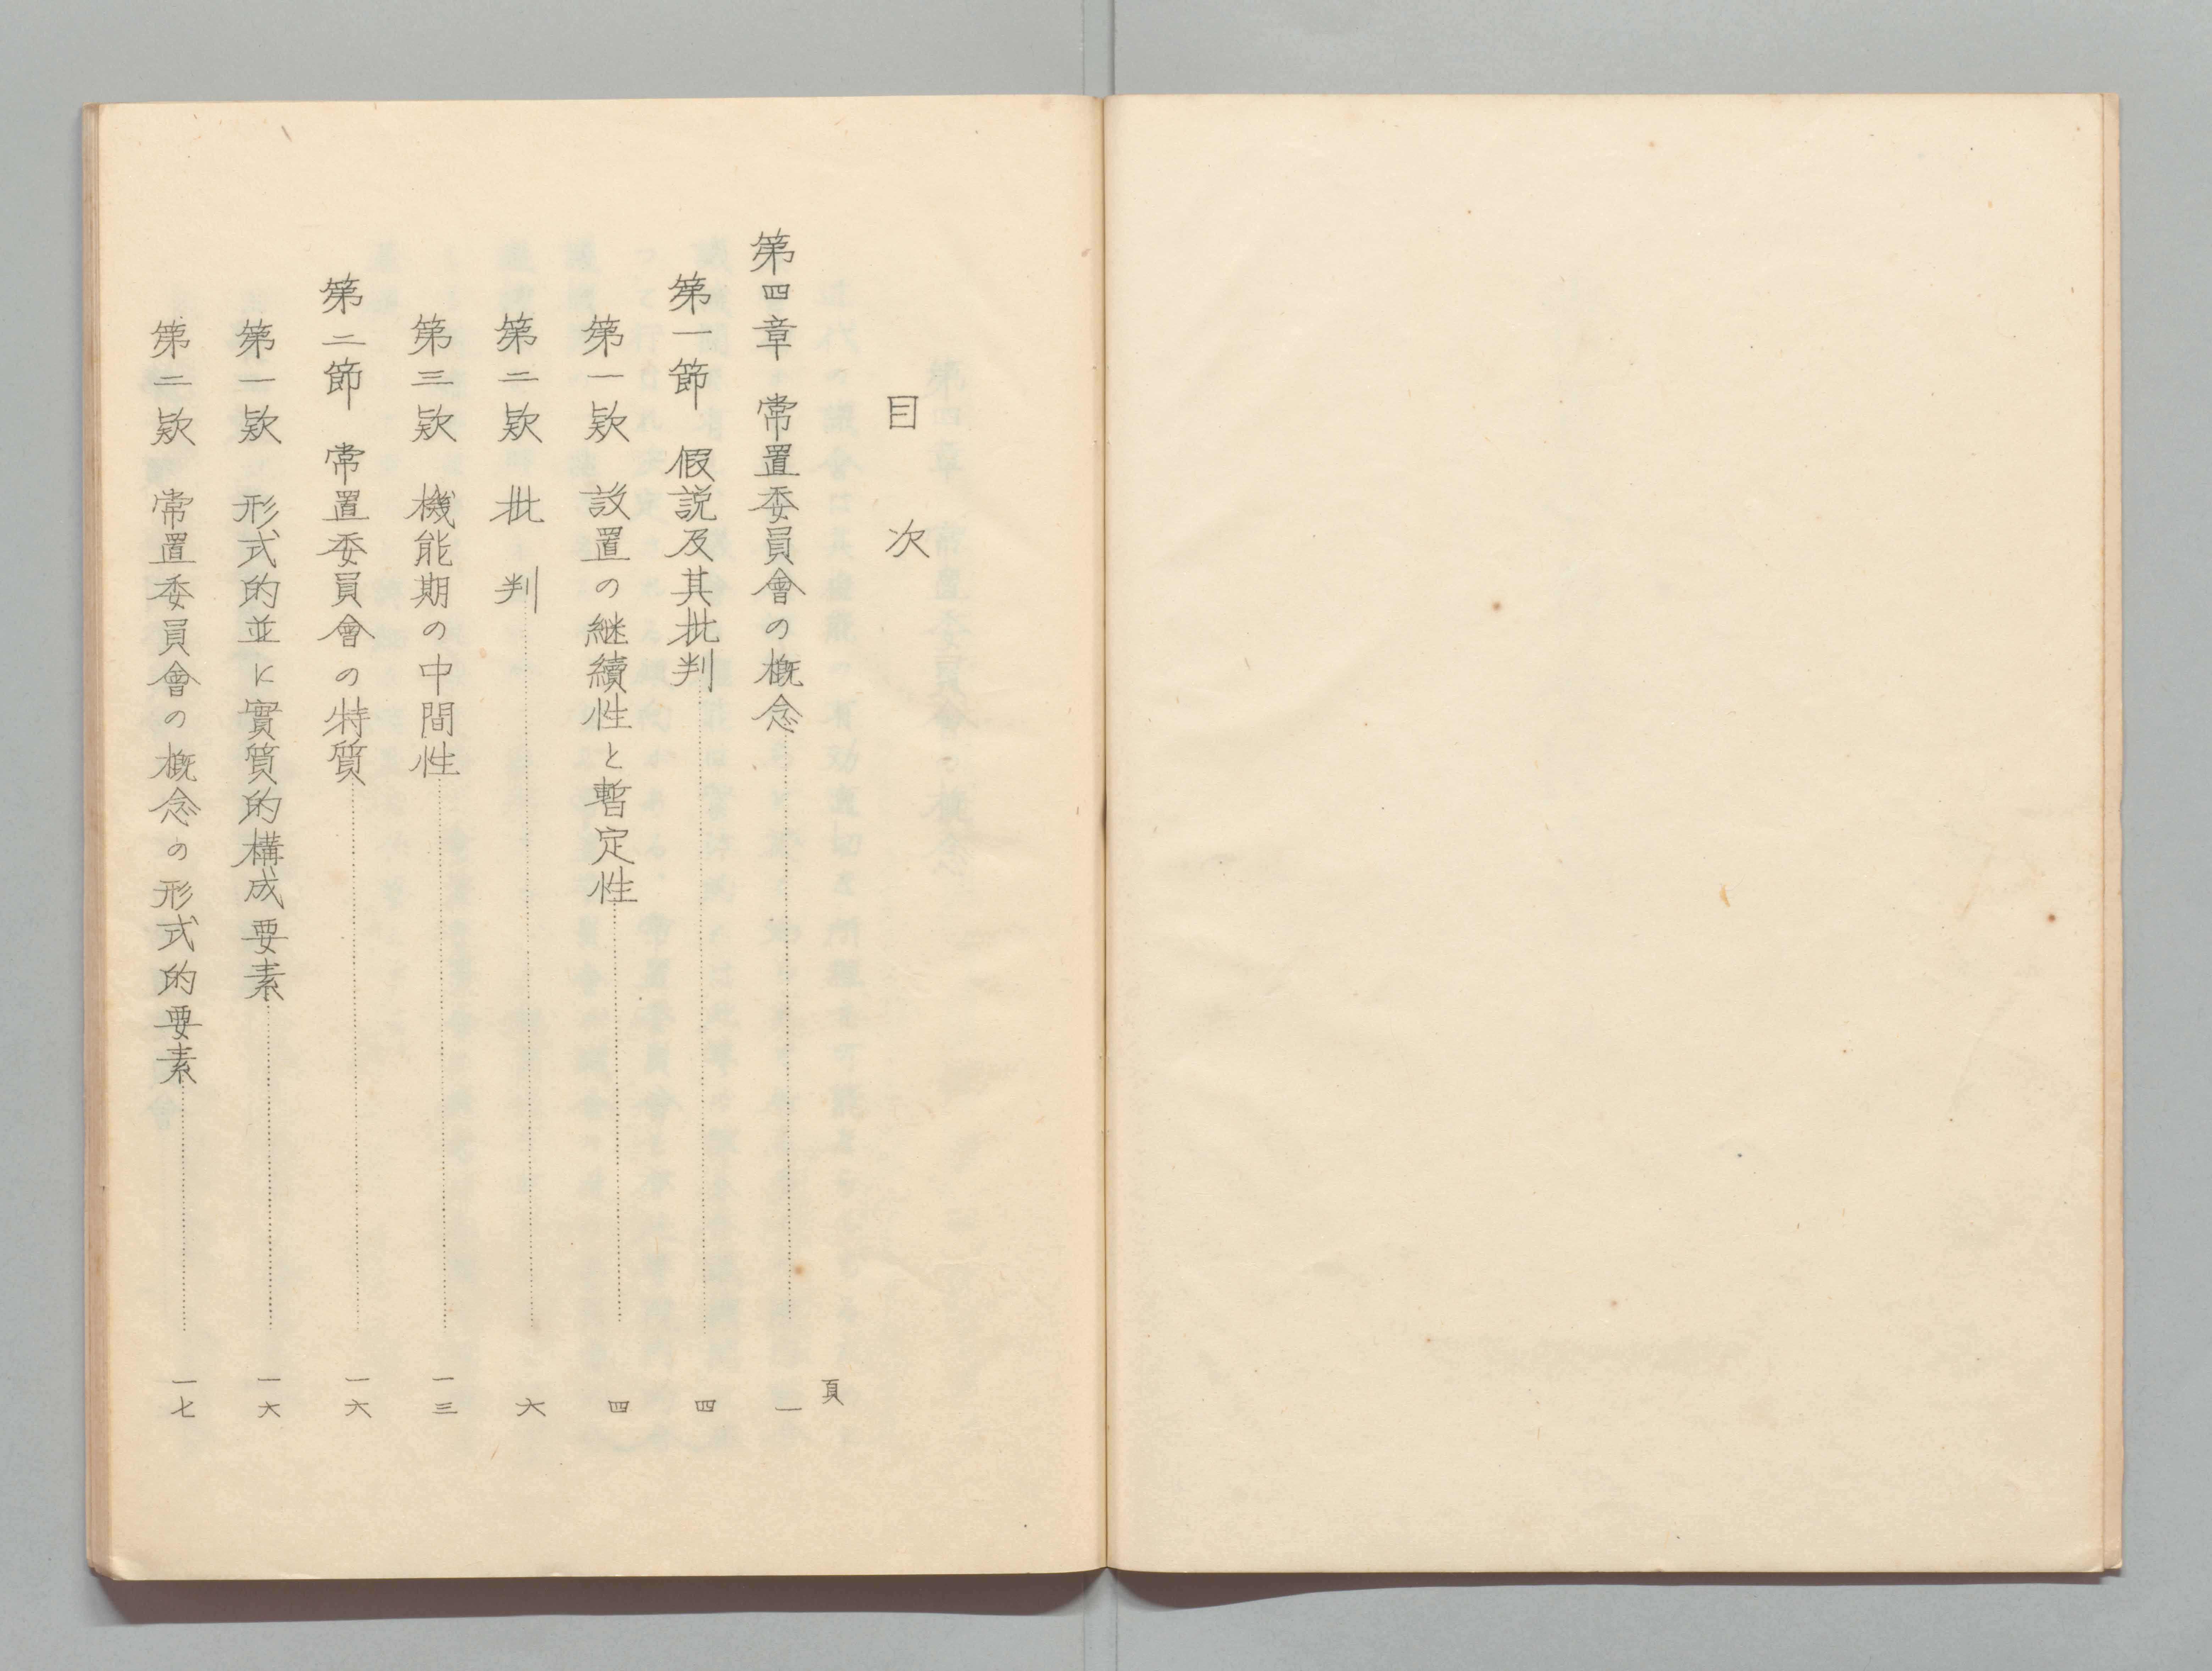 目次
頁
第四章 常置委員會の概念……一
第一節 假説及其批判……四
第一欵 設置の継續性と暫定性……四
第二欵 批判……六
第三欵 機能期の中間性……一三
第二節 常置委員會の特質……一六
第一欵 形式的並に實質的構成要素……一六
第二欵 常置委員會の概念の形式的要素……一七